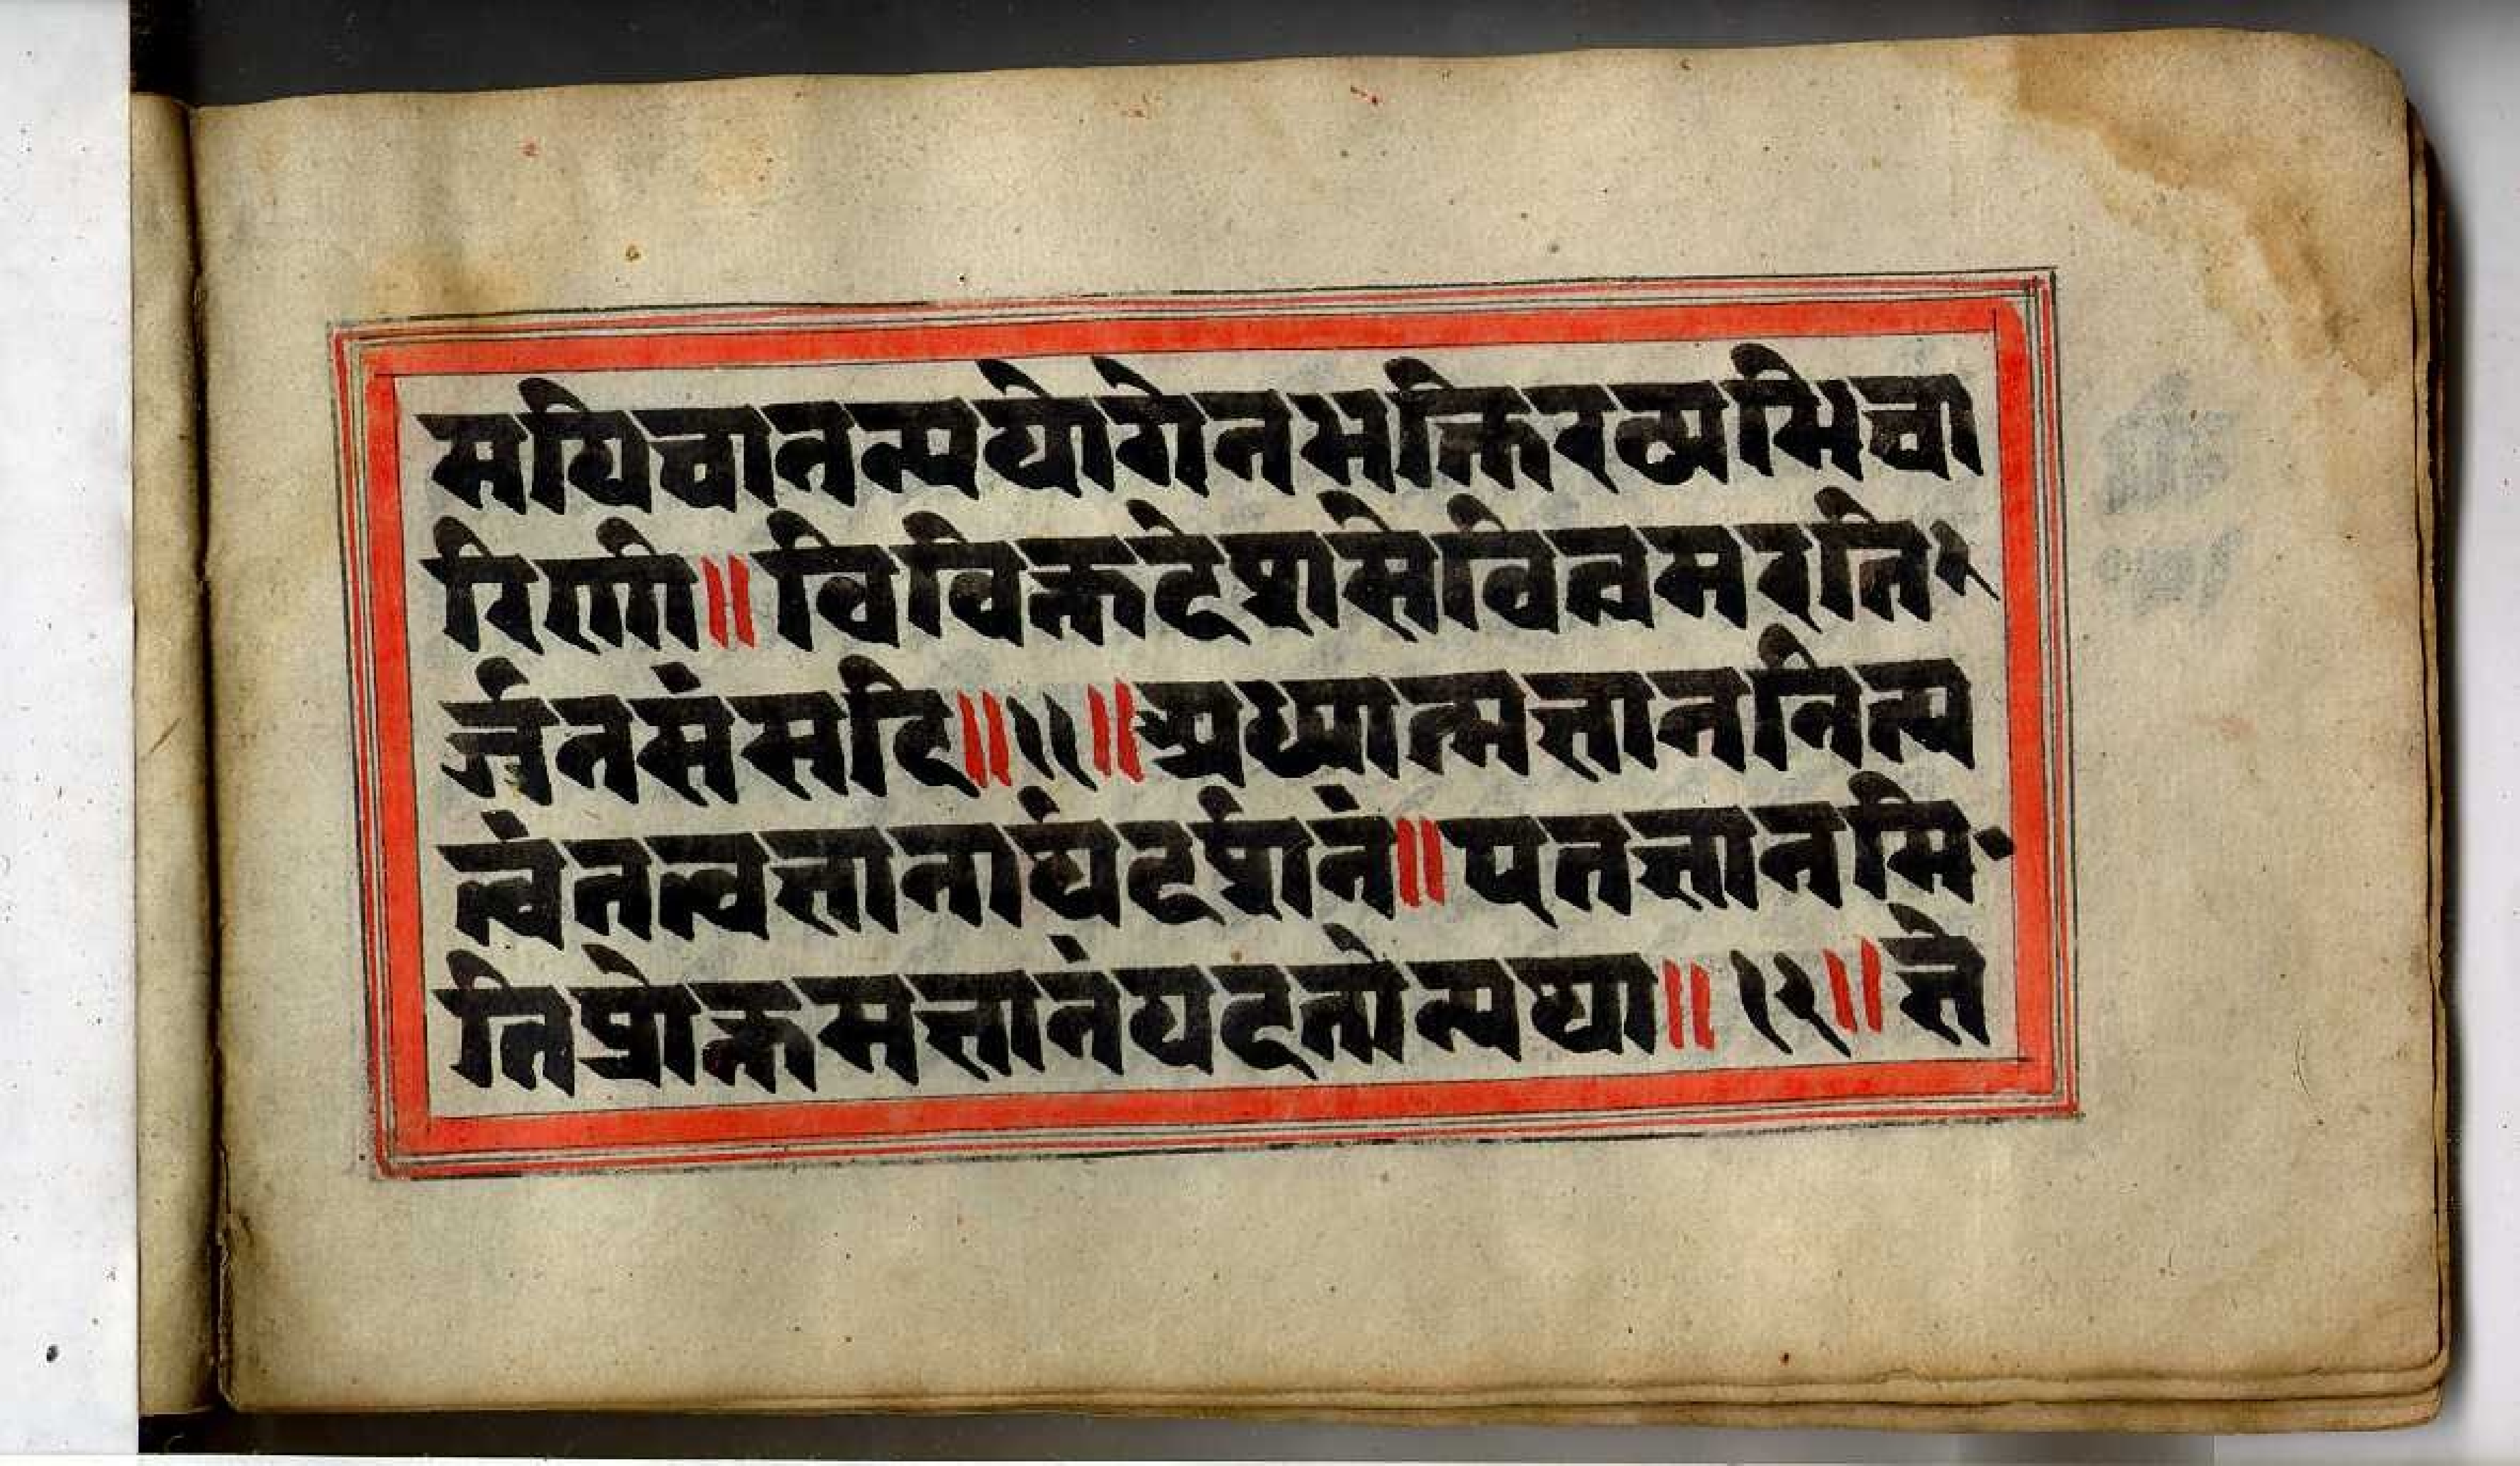 मयिचानन्ययोगेनभक्तिरव्यभिचा
रिणी॥विविक्तदेशसेवित्वमरति
र्जनसंसदि॥११॥अध्यात्मज्ञाननित्य
त्वंतत्वज्ञानार्थदर्शनं॥एतज्ज्ञानमि
तिप्रोक्तमज्ञानंयदतोन्यथा॥१२॥ज्ञे